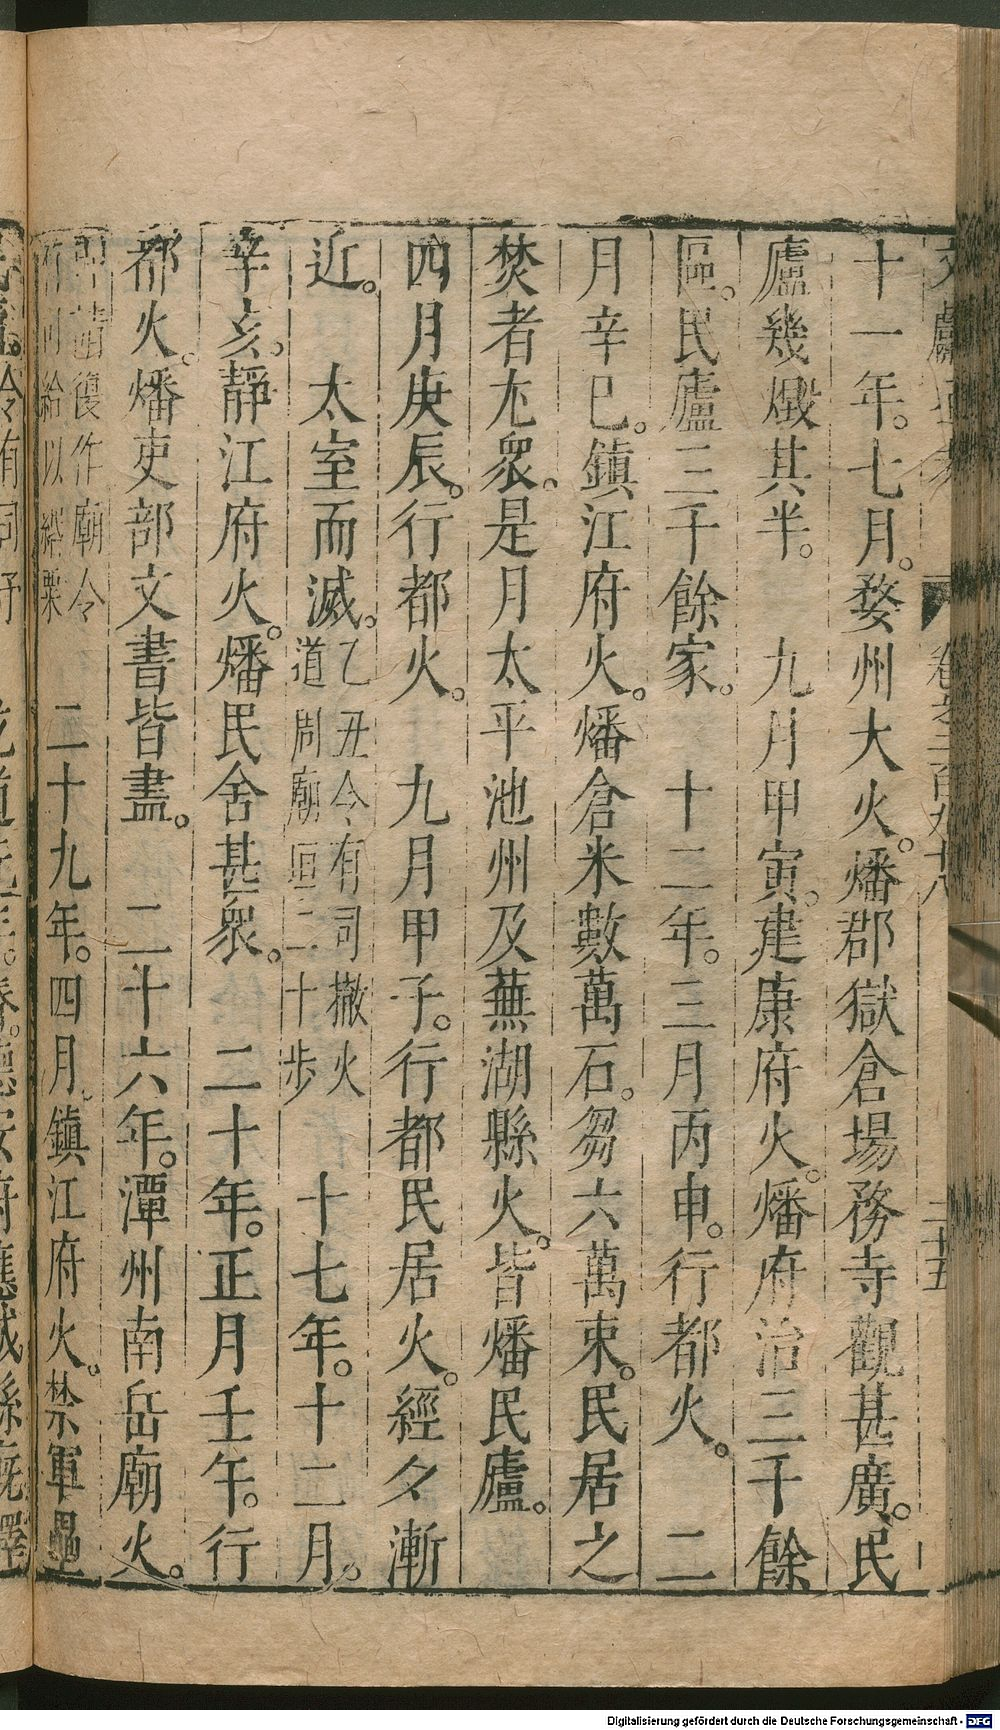 文獻通考 卷之二百九十八 二十五
十一年。七月。婺州大火。燔郡獄倉場務寺觀甚廣。民
廬幾燬其半。 九月甲寅。建康府火。燔府治三千餘
區。民廬三千餘家。 十二年。三月丙申。行都火。 二
月辛巳。鎮江府火。燔倉米數萬石。芻六萬束。民居之
焚者尢衆。是月太平池州及蕪湖縣火。皆燔民廬。
四月庚辰。行都火。 九月甲子。行都民居火。經夕漸
近。 太室而滅。乙丑令有司撤火
道周廟垣二十步 十七年。十二月。
辛亥。靜江府火。燔民舍甚衆。 二十年。正月壬午。行
都火。燔吏部文書皆盡。 二十六年。潭州南岳廟火。
復作廟令
有司給以 二十九年。四月。鎮江府火。禁軍
Digitalisierung gefördert durch die Deutsche Forschungsgemeinschaft - DFG